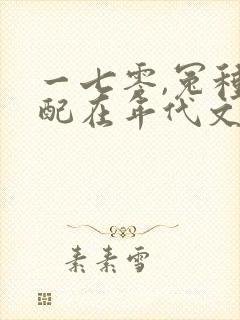 一七零,冤种
配在年代文
素素雪